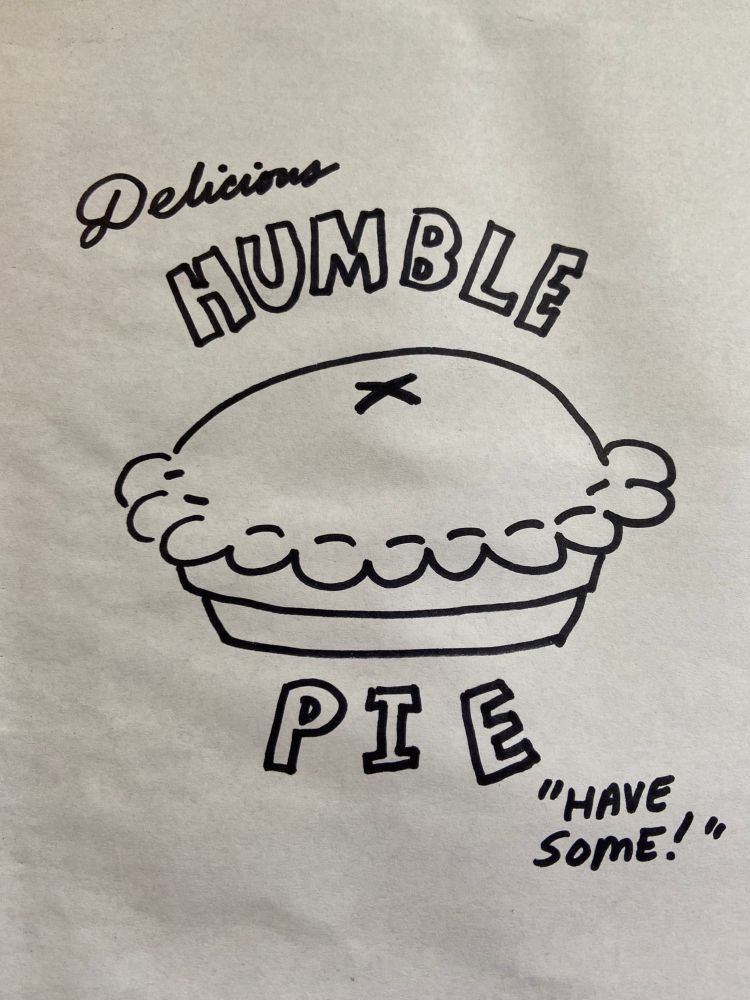 Delicious
HUMBLE
PIE
"HAVE
SOME!"